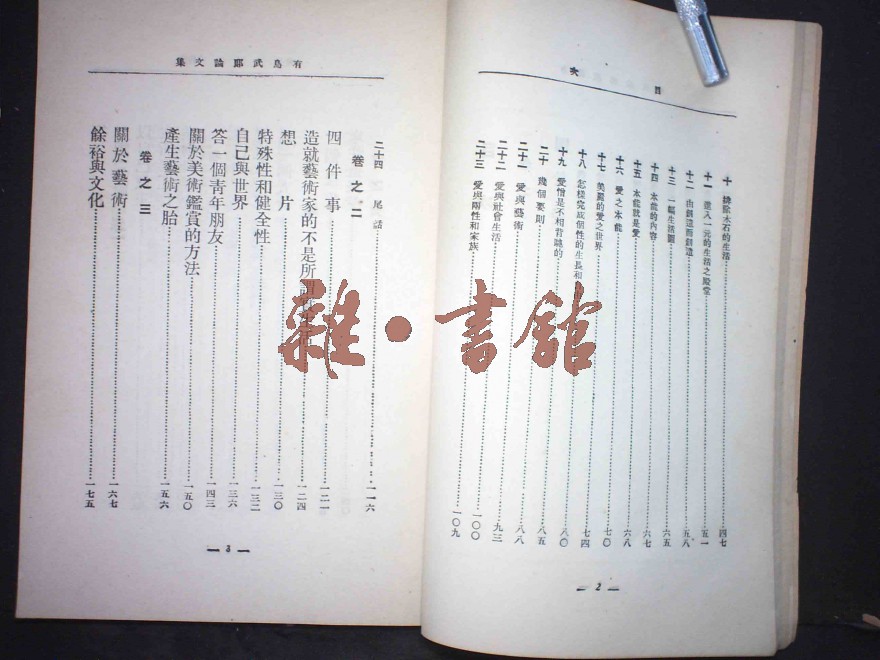 目次
十 撓除木石的生活 四七
十一 進入一元的生活之殿堂 五一
十二 由創造而創造 五八
十三 一幅生活圖 六五
十四 本能的內容 六七
十五 本能就是愛 六八
十六 愛之本能 七〇
十七 美麗的愛之世界
十八 怎樣完成個性的生長和 七四
十九 愛憎是不相背馳的 八〇
二十 幾個要則 八五
二十一 愛與藝術 八八
二十二 愛與社會生活 九三
二十三 愛與兩性和家族 一〇〇
一〇九
— 2 —
有島武郎論文集
二十四 尾語 一一六
卷之二
四件事 一二一
造就藝術家的不是所謂 一二四
想片 一三〇
特殊性和健全性 一三二
自己與世界 一三六
答一個青年朋友 一四三
關於美術鑑賞的方法 一五〇
產生藝術之胎 一五六
卷之三
關於藝術 一六七
餘裕與文化 一七五
— 3 —
雜·書館